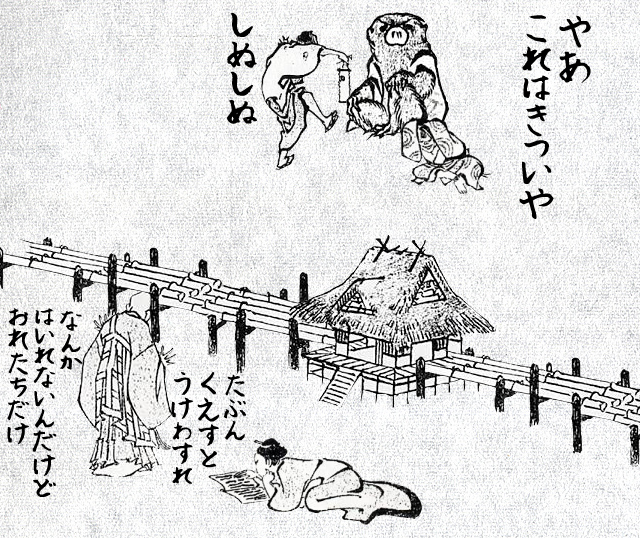 やあ
これはきついや
しぬしぬ
たぶん
くえすと
うけわすれ
なんか
はいれないんだけど
おれたちだけ